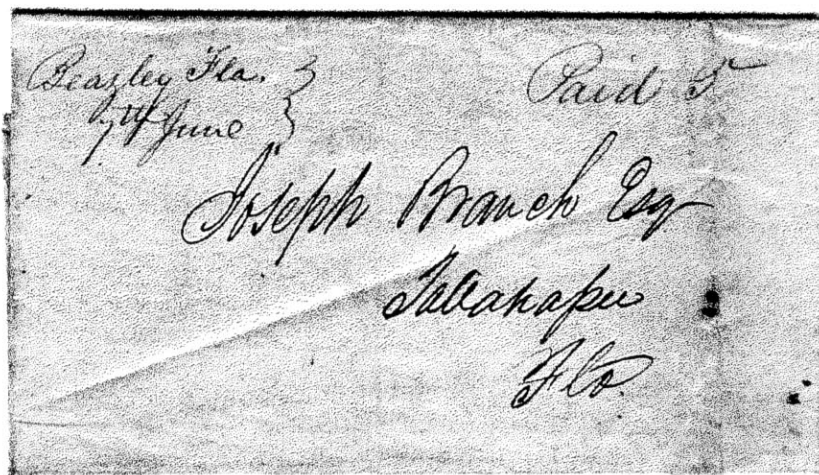 Beazley Fla.
7th June
Paid 5
Joseph Branch Esq
Tallahassee
Flo.